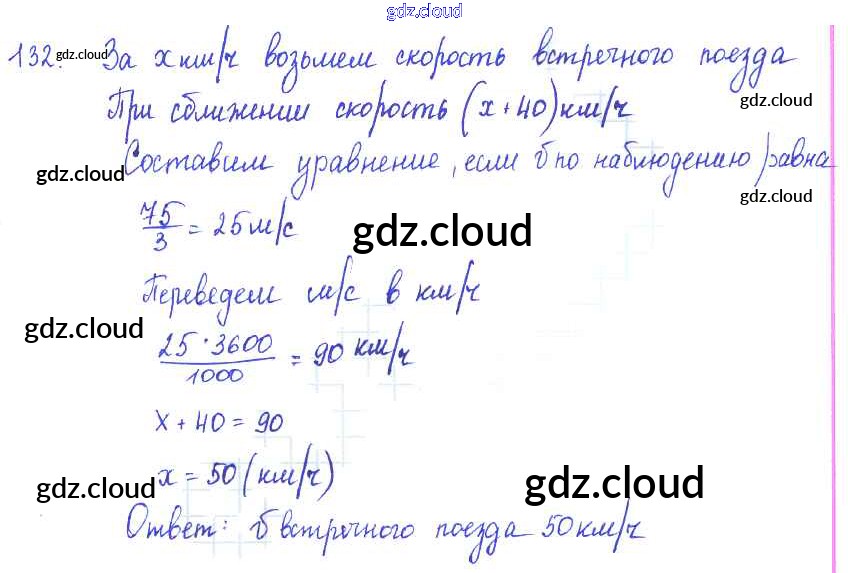 gdz.cloud
132. gdz.cloud За x км/ч возьмем скорость встречного поезда
При сближении скорость (x+40) км/ч gdz.cloud
Составим уравнение, если ʊ по наблюдению равна
gdz.cloud gdz.cloud
75/3 = 25 м/с gdz.cloud
Переведем м/с в км/ч
gdz.cloud gdz.cloud
25·3600/1000 = 90 км/ч
x + 40 = 90
x = 50 (км/ч)
gdz.cloud gdz.cloud
Ответ: ʊ встречного поезда 50 км/ч